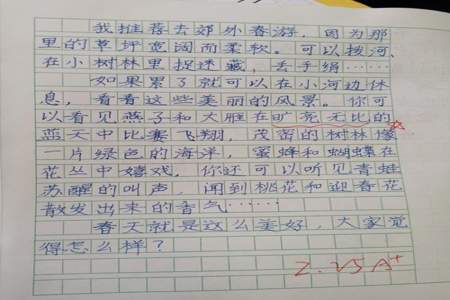 我推荐去郊外春游，因为那
里的草坪宽阔而柔软。可以拔河、
在小树林里捉迷藏，丢手绢……
如果累了就可以在小河边休
息，看看这些美丽的风景。你可
以看见燕子和大雁在旷亮无比的
蓝天中比赛飞翔，茂密的树林像
一片绿色的海洋，蜜蜂和蝴蝶在
花丛中嬉戏，你还可以听见青蛙
苏醒的叫声，闻到桃花和迎春花
散发出来的香气……
春天就是这么美好，大家觉
得怎么样？
2.25 A+